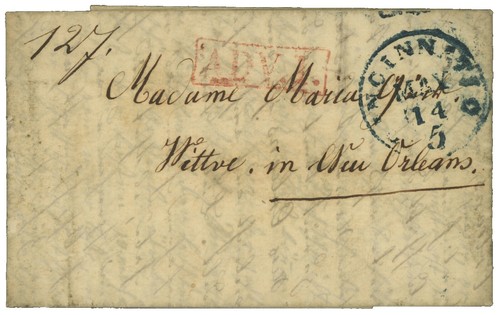 127.
CINNATI O
MAY
14
5
Madame Maria
Wittve. in New Orleans.